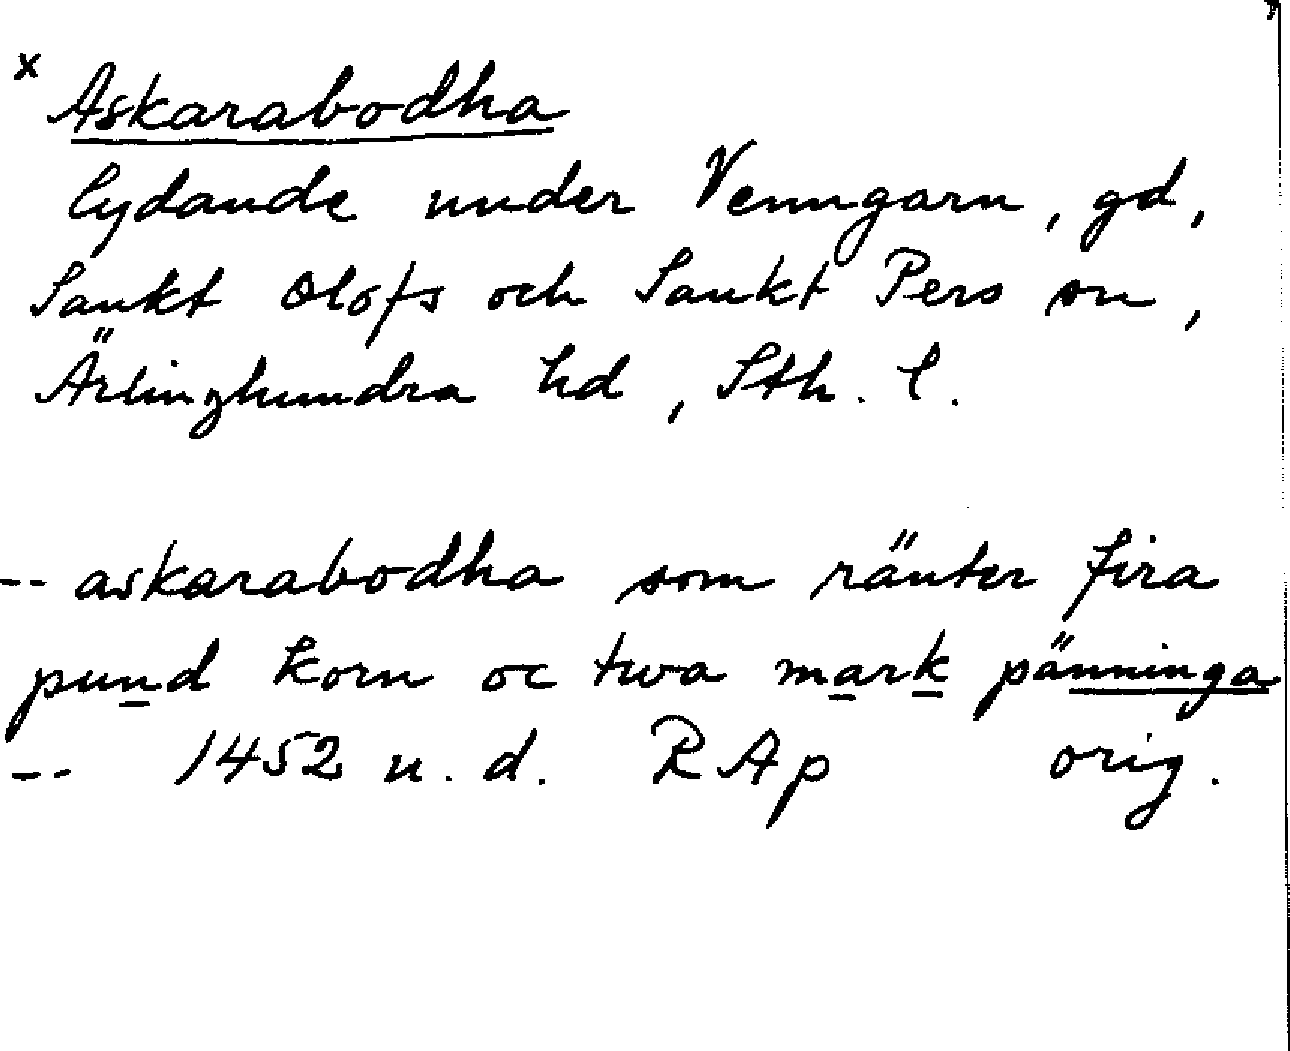 x Askarabodha
lydande under Venngarn, gd,
Sankt Olofs och Sankt Pers sn,
Ärlinghundra hd, Sth. l.
-- askarabodha som ränter fira
pund korn oc twa mark pänninga
-- 1452 u. d. RAp orig.